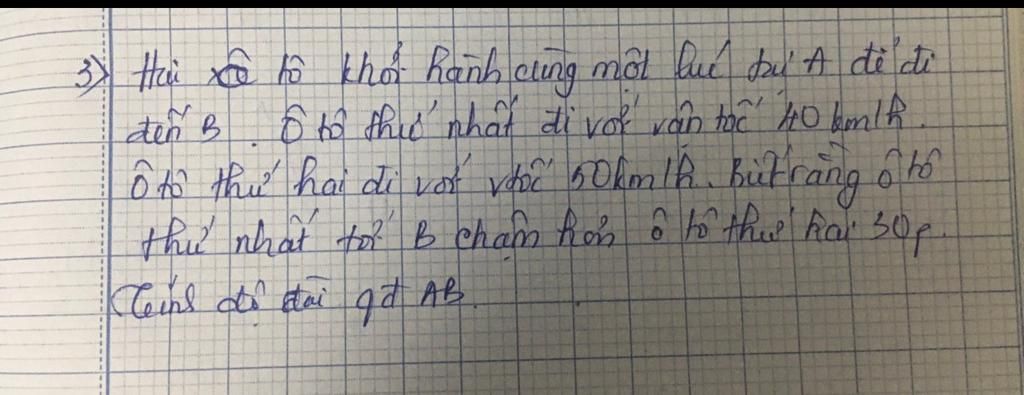 3) Hai ô tô khởi hành cùng một lúc từ A để đi
đến B. Ô tô thứ nhất đi với vận tốc 40 km/h.
Ô tô thứ hai đi với vtốc 50km/h. Biết rằng ô tô
thứ nhất tới B chậm hơn ô tô thứ hai 30p.
Tính độ dài qđ AB.